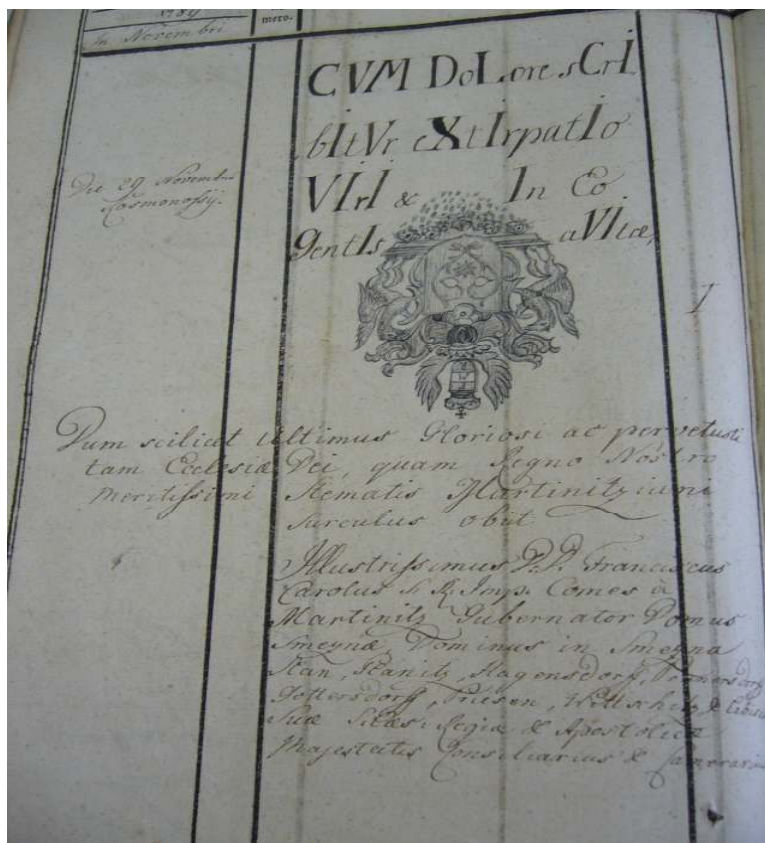 1789
mero.
In Novembri
CVM DoLore sCrI
bItVr eXtIrpatIo
VIrI & In Eo
gentIs aVItæ,
Die 29 Novembris
Kosmonossy.
I
Dum scilicet Ultimus Gloriosi ac pervetusti
tam Ecclesiæ Dei, quam Regno Nostro
meritissimi Stematis Martinitziani
surculus obiit
Illustrissimus D.D. Franciscus
Carolus S. R. Imp. Comes à
Martinitz Gubernator Domus
Smeynæ, Dominus in Smeyna
Stan, Hagensdorf,
Gottersdorf, Priesen, &
Suæ Regiæ & Apostolicæ
Majestatis Consiliarius &